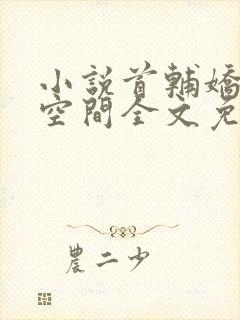 小說首輔嬌
空間全文免
農二少